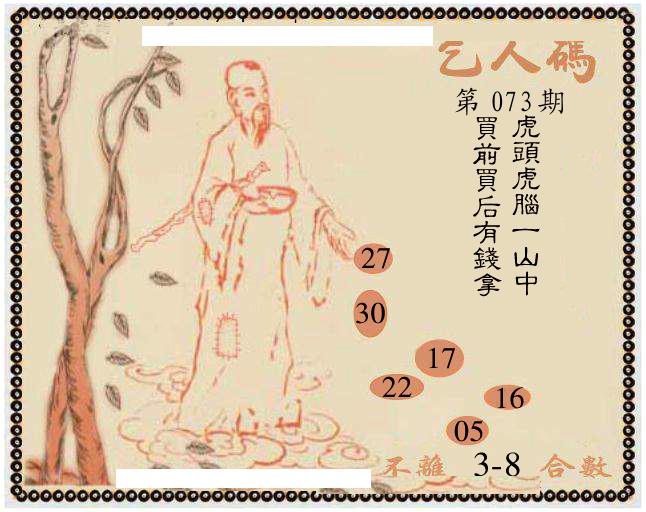 乞人碼
第073期
虎頭虎腦一山中
買前買后有錢拿
27
30
17
22
16
05
不離 3-8 合數